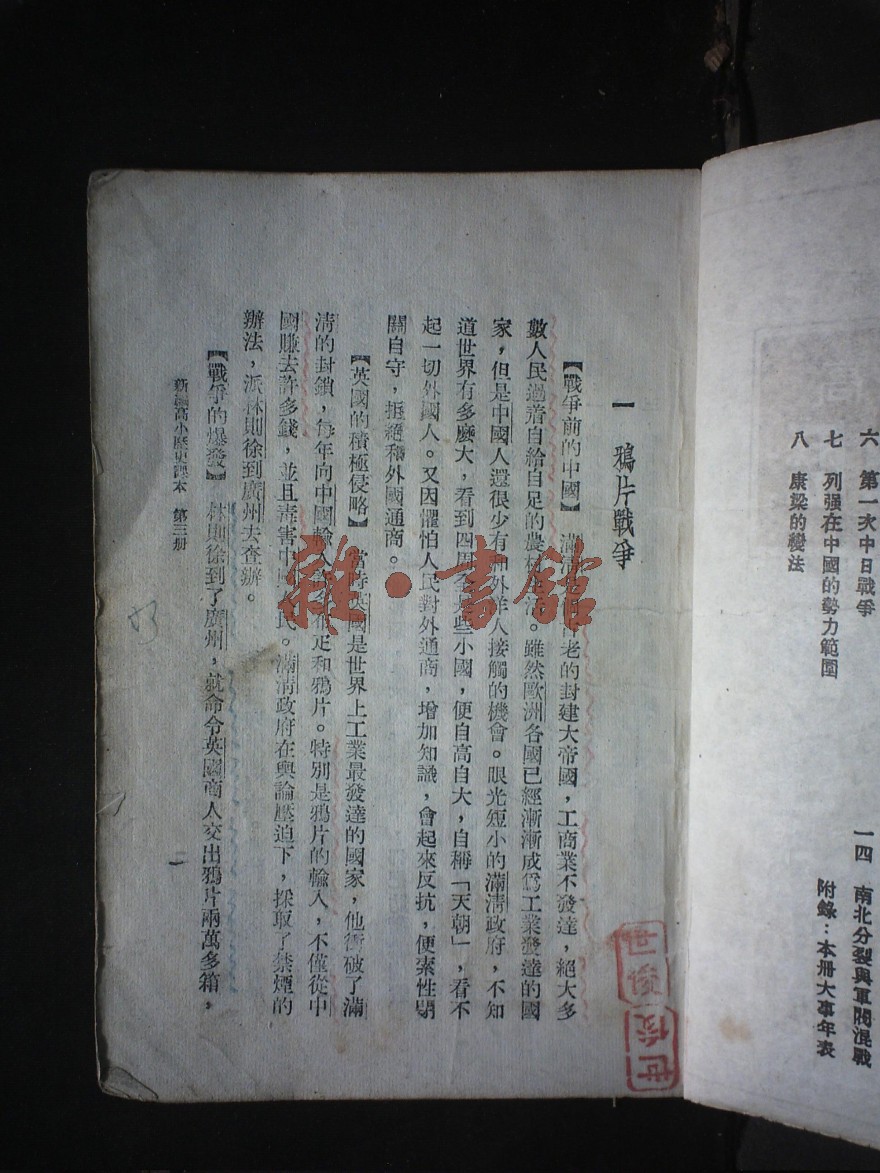 六 第一次中日戰爭
七 列强在中國的勢力範圍
八 康梁的變法
一四 南北分裂與軍閥混戰
附錄：本册大事年表
一 鴉片戰爭
【戰爭前的中國】 滿清 老的封建大帝國，工商業不發達，絕大多
數人民過着自給自足的農村生活。雖然歐洲各國已經漸漸成爲工業發達的國
家，但是中國人還很少有和外洋人接觸的機會。眼光短小的滿清政府，不知
道世界有多麼大，看到四周全是些小國，便自高自大，自稱「天朝」，看不
起一切外國人。又因懼怕人民對外通商，增加知識，會起來反抗，便索性閉
關自守，拒絕和外國通商。
【英國的積極侵略】 當時英國是世界上工業最發達的國家，他衝破了滿
清的封鎖，每年向中國輸入 和鴉片。特別是鴉片的輸入，不僅從中
國賺去許多錢，並且毒害中 民。滿清政府在輿論壓迫下，採取了禁煙的
辦法，派林則徐到廣州去查辦。
【戰爭的爆發】 林則徐到了廣州，就命令英國商人交出鴉片兩萬多箱，
新編高小歷史課本 第三册
一
雜·書館
世俊